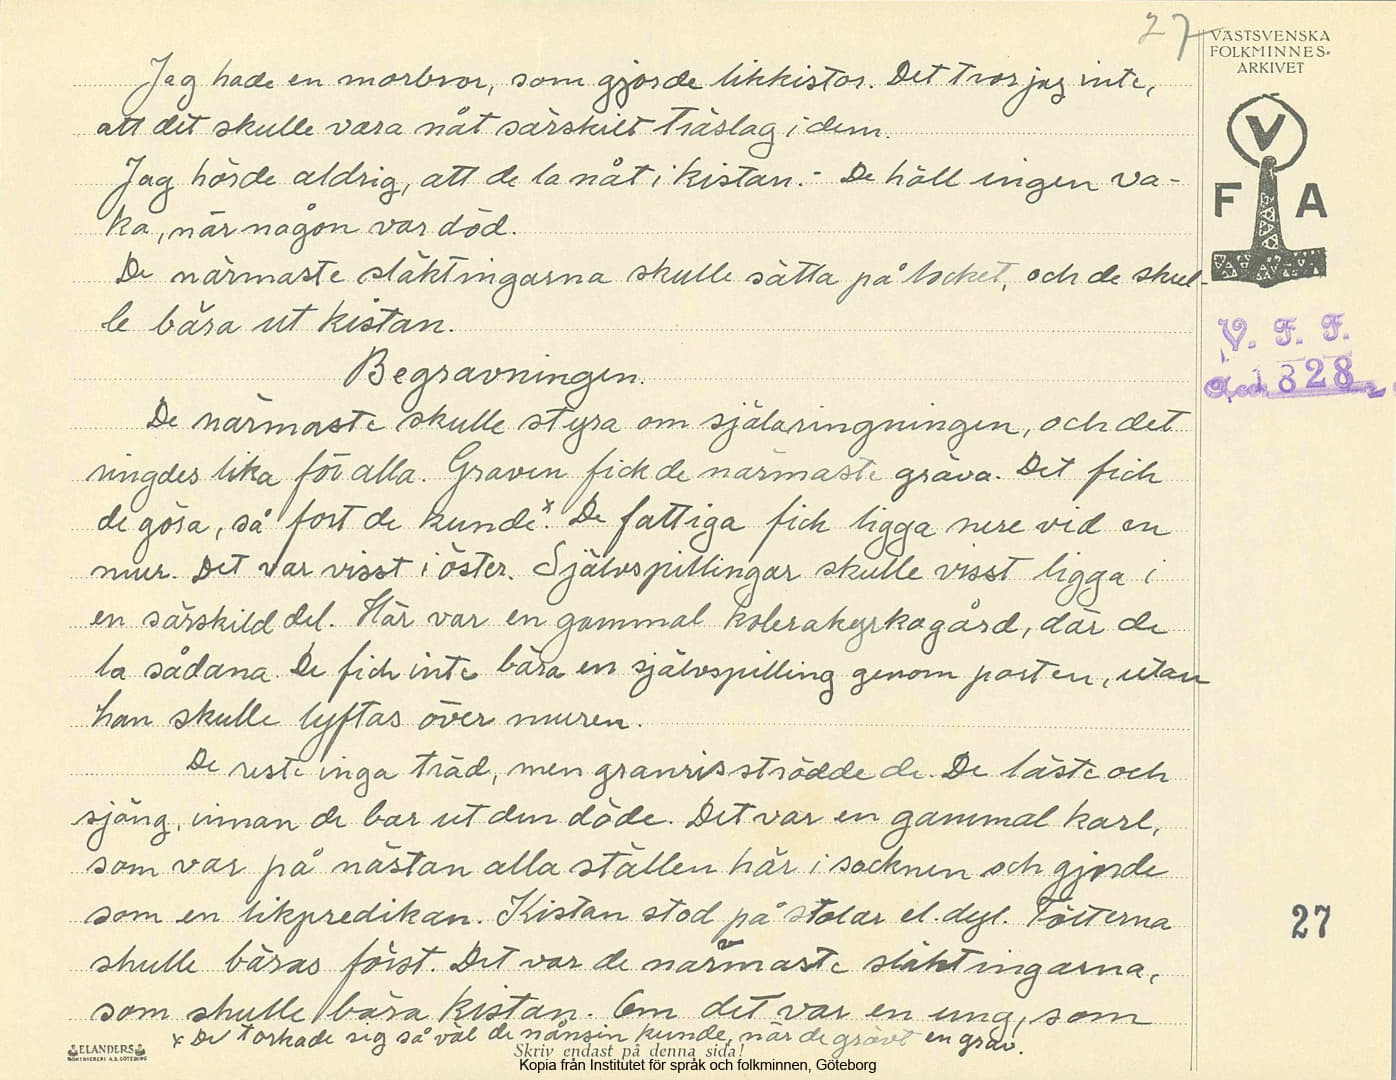 27
VÄSTSVENSKA
FOLKMINNES-
ARKIVET
V
F A
V. F. F.
Acc. 1828
Jag hade en morbror, som gjorde likkistor. Det tror jag inte,
att det skulle vara nåt särskilt träslag i dem.
Jag hörde aldrig, att de la nåt i kistan. - De höll ingen va-
ka, när någon var död.
De närmaste släktingarna skulle sätta på locket, och de skul-
le bära ut kistan.
Begravningen.
De närmaste skulle styra om själaringningen, och det
ringdes lika för alla. Graven fick de närmaste gräva. Det fick
de göra, så fort de kunde.x De fattiga fick ligga nere vid en
mur. Det var visst i öster. Självspillingar skulle visst ligga i
en särskild del. Här var en gammal kolerakyrkogård, där de
la sådana. De fick inte bära en självspilling genom porten, utan
han skulle lyftas över muren.
De reste inga träd, men granris strödde de. De läste och
sjöng, innan de bar ut den döde. Det var en gammal karl,
som var på nästan alla ställen här i socknen och gjorde
som en likpredikan. Kistan stod på stolar el. dyl. Fötterna
skulle bäras först. Det var de närmaste släktingarna,
som skulle bära kistan. Om det var en ung, som
x De torkade sig så väl de nånsin kunde, när de grävt en grav.
27
ELANDERS
Skriv endast på denna sida!
Kopia från Institutet för språk och folkminnen, Göteborg